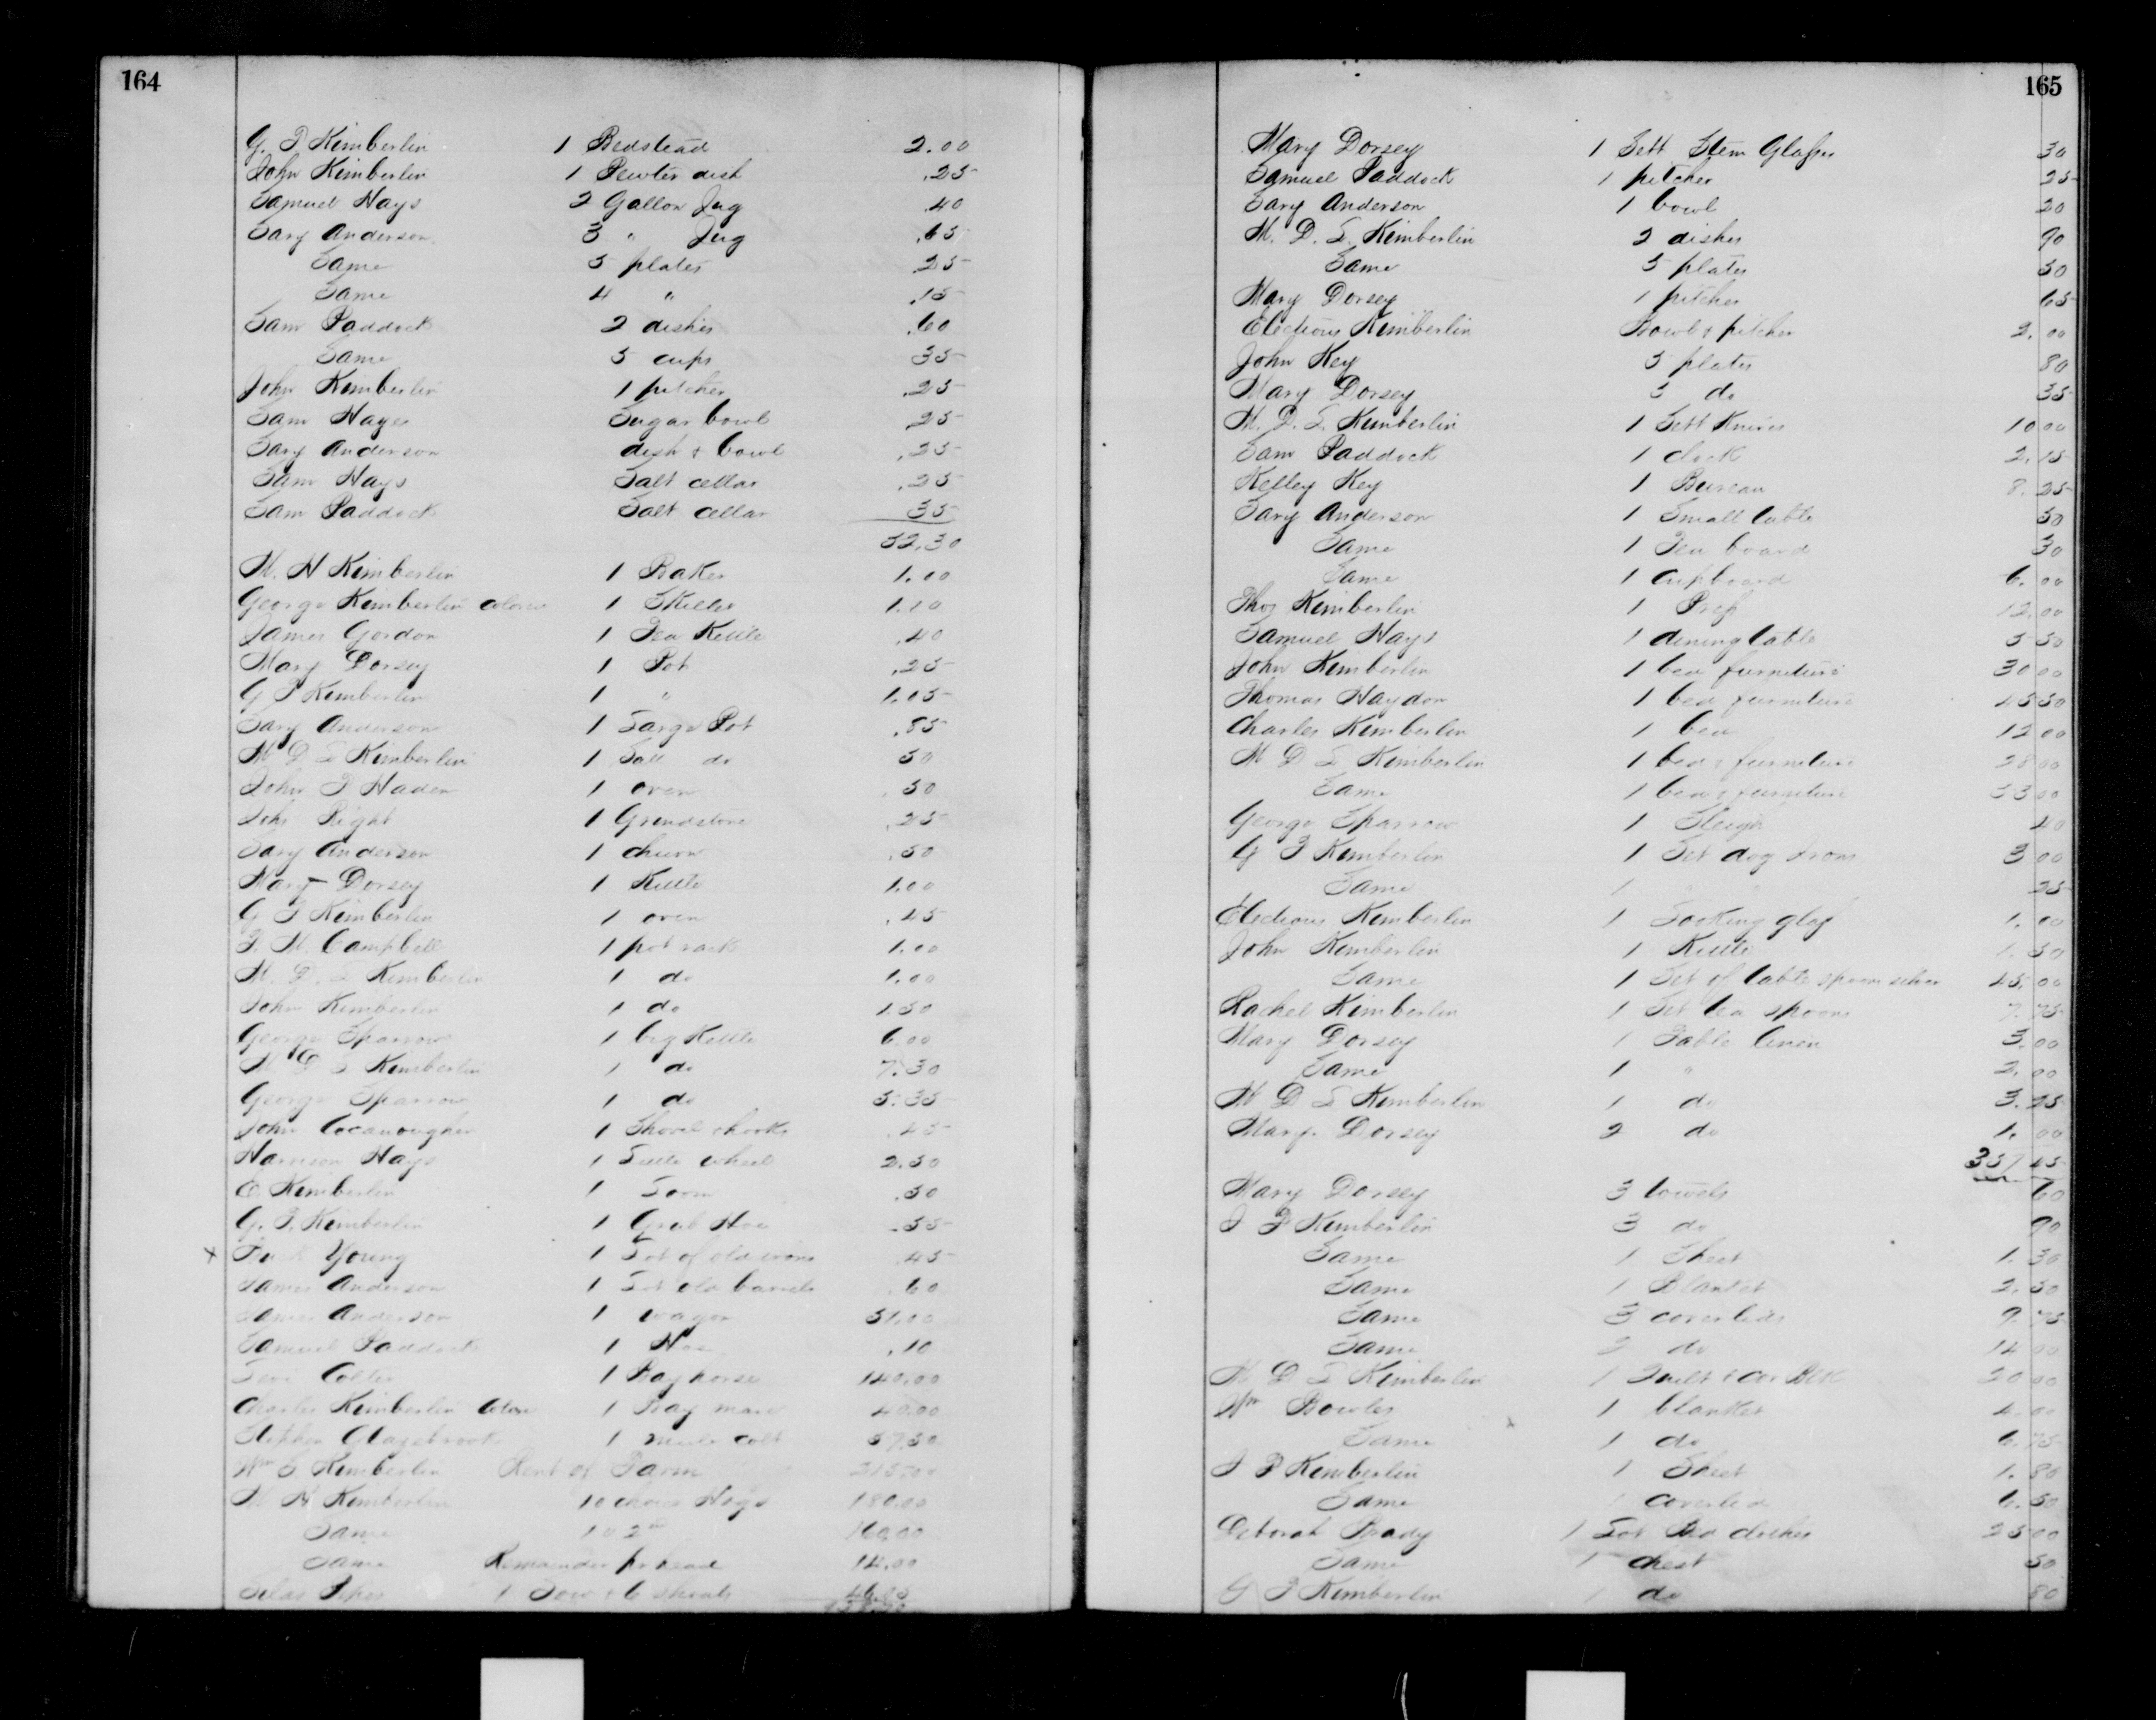 164
G. T Kimberlin 1 Bedstead 2.00
John Kimberlin 1 Pewter dish .25
Samuel Hays 2 Gallon Jug .40
Gary Anderson 3 " Jug .65
Same 5 plates .25
Same 4 " .15
Sam Paddock 2 dishes .60
Same 5 cups 35
John Kimberlin 1 pitcher .25
Sam Hayes Sugar bowl .25
Gary Anderson dish & bowl .25
Sam Hays Salt cellar .25
Sam Paddock Salt cellar 35
52.30
M. H Kimberlin 1 Baker 1.00
George Kimberlin 1 Skillet 1.10
James Gordon 1 Tea Kettle .40
Mary Dorsey 1 Pot .25
G T Kimberlin 1 " 1.05
Gary Anderson 1 Large Pot .85
M D L Kimberlin 1 do 50
John T Haden 1 oven .50
Right 1 Grindstone .25
Gary Anderson 1 churn .50
Mary Dorsey 1 Kettle 1.00
G T Kimberlin 1 oven .45
T. M. Campbell 1 pot rack 1.00
M. D. L Kimberlin 1 do 1.00
John Kimberlin 1 do 1.50
George Sparrow 1 big Kettle 6.00
M D L Kimberlin 1 do 7.30
George Sparrow 1 do 5.35
John Cocanougher 1 Shovel .45
Harrison Hays 1 Little wheel 2.50
E. Kimberlin 1 Loom .50
G. T. Kimberlin 1 Grub Hoe .55
x Young 1 Lot of old irons .45
James Anderson 1 Lot old barrels .60
James Anderson 1 wagon 51.00
Samuel Paddock 1 Hoe .10
Levi 1 Bay horse 140.00
Charles Kimberlin 1 Bay mare 40.00
Stephen Glazebrook 1 mule colt 57.50
Wm S. Kimberlin Rent of Farm 215.00
M H Kimberlin 10 choice Hogs 180.00
Same 10 2nd 160.00
Same Remainder pr head 14.00
Silas 1 Sow & 6 shoats
165
Mary Dorsey 1 Sett Stem Glasses 30
Samuel Paddock 1 pitcher 25
Gary Anderson 1 bowl 20
M. D. L. Kimberlin 2 dishes 90
Same 5 plates 50
Mary Dorsey 1 pitcher 65
Electious Kimberlin Bowl & pitcher 2.00
John Key 5 plates 80
Mary Dorsey 5 do 35
M. D. L. Kimberlin 1 Sett Knives 10 00
Sam Paddock 1 clock 2.15
Kelley Key 1 Bureau 8.25
Gary Anderson 1 Small table 50
Same 1 Tea board 30
Same 1 Cupboard 6.00
Thos Kimberlin 1 Press 12.00
Samuel Hays 1 dining table 5 50
John Kimberlin 1 bed furniture 30 00
Thomas Haydon 1 bed furniture 45 50
Charles Kimberlin 1 bed 12 00
M D L Kimberlin 1 bed & furniture 28 00
Same 1 bed & furniture 33 00
George Sparrow 1 Sleigh 40
G T Kimberlin 1 Set dog Irons 3 00
Same 1 " 25
Electious Kimberlin 1 Looking glass 1.00
John Kimberlin 1 Kettle 1.50
Same 1 Set of table spoon silver 45.00
Rachel Kimberlin 1 Set tea spoons 7.75
Mary Dorsey 1 Table linen 3.00
Same 1 " 2.00
M D L Kimberlin 1 do 3.25
Mary Dorsey 2 do 1.00
357 45
Mary Dorsey 3 towels 60
J P Kimberlin 3 do 90
Same 1 Sheet 1.30
Same 1 Blanket 2.50
Same 3 coverleds 9.75
Same 2 do 14 00
M D L Kimberlin 1 Quilt & 20 00
Wm Bowles 1 blanket 4.00
Same 1 do 6.75
J P Kimberlin 1 Sheet 1.80
Same coverled 6.50
Deborah Brady 1 Lot Bed clothes 25 00
Same 1 chest 50
G T Kimberlin 1 do 80